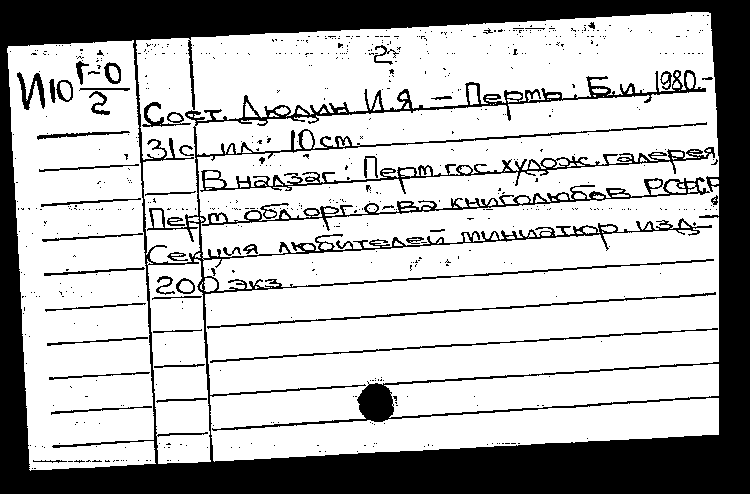 2
И10 Г-0/2
Сост. Дюдин И.Я. – Пермь: Б.и., 1980.-
31с., ил.; 10 см.
В надзаг.: Перм. гос. худож. галерея,
Перм. обл. орг. о-ва книголюбов РСФСР
Секция любителей миниатюр. изд.–
200 экз.